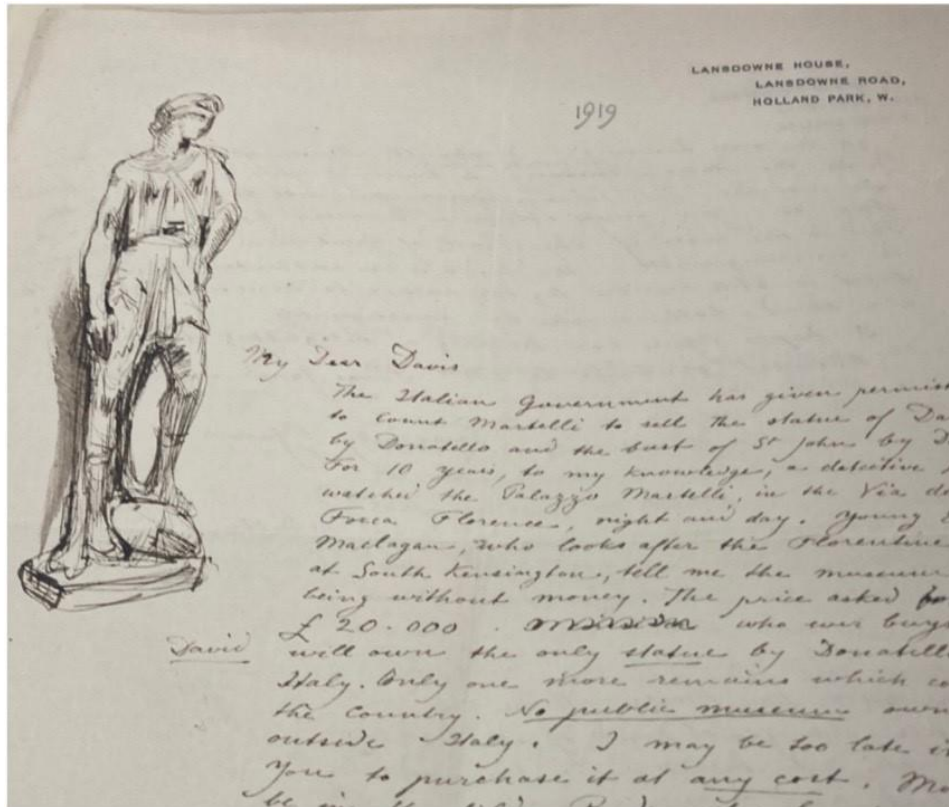 LANSDOWNE HOUSE,
LANSDOWNE ROAD,
HOLLAND PARK, W.
1919
My Dear Davis
The Italian Government has given
to Count Martelli to sell the statue of
by Donatello and the bust of St John by
For 10 years, to my knowledge, a detective
watched the Palazzo Martelli, in the Via
Forca Florence, night and day. Young
Maclagan, who looks after the Florentine
at South Kensington, tell me the museum
being without money. The price asked
£20.000. who ever buys
David
will own the only statue by Donatello
Italy. Only one more remains which
the Country. No public museum
outside Italy. I may be too late
you to purchase it at any cost.
be